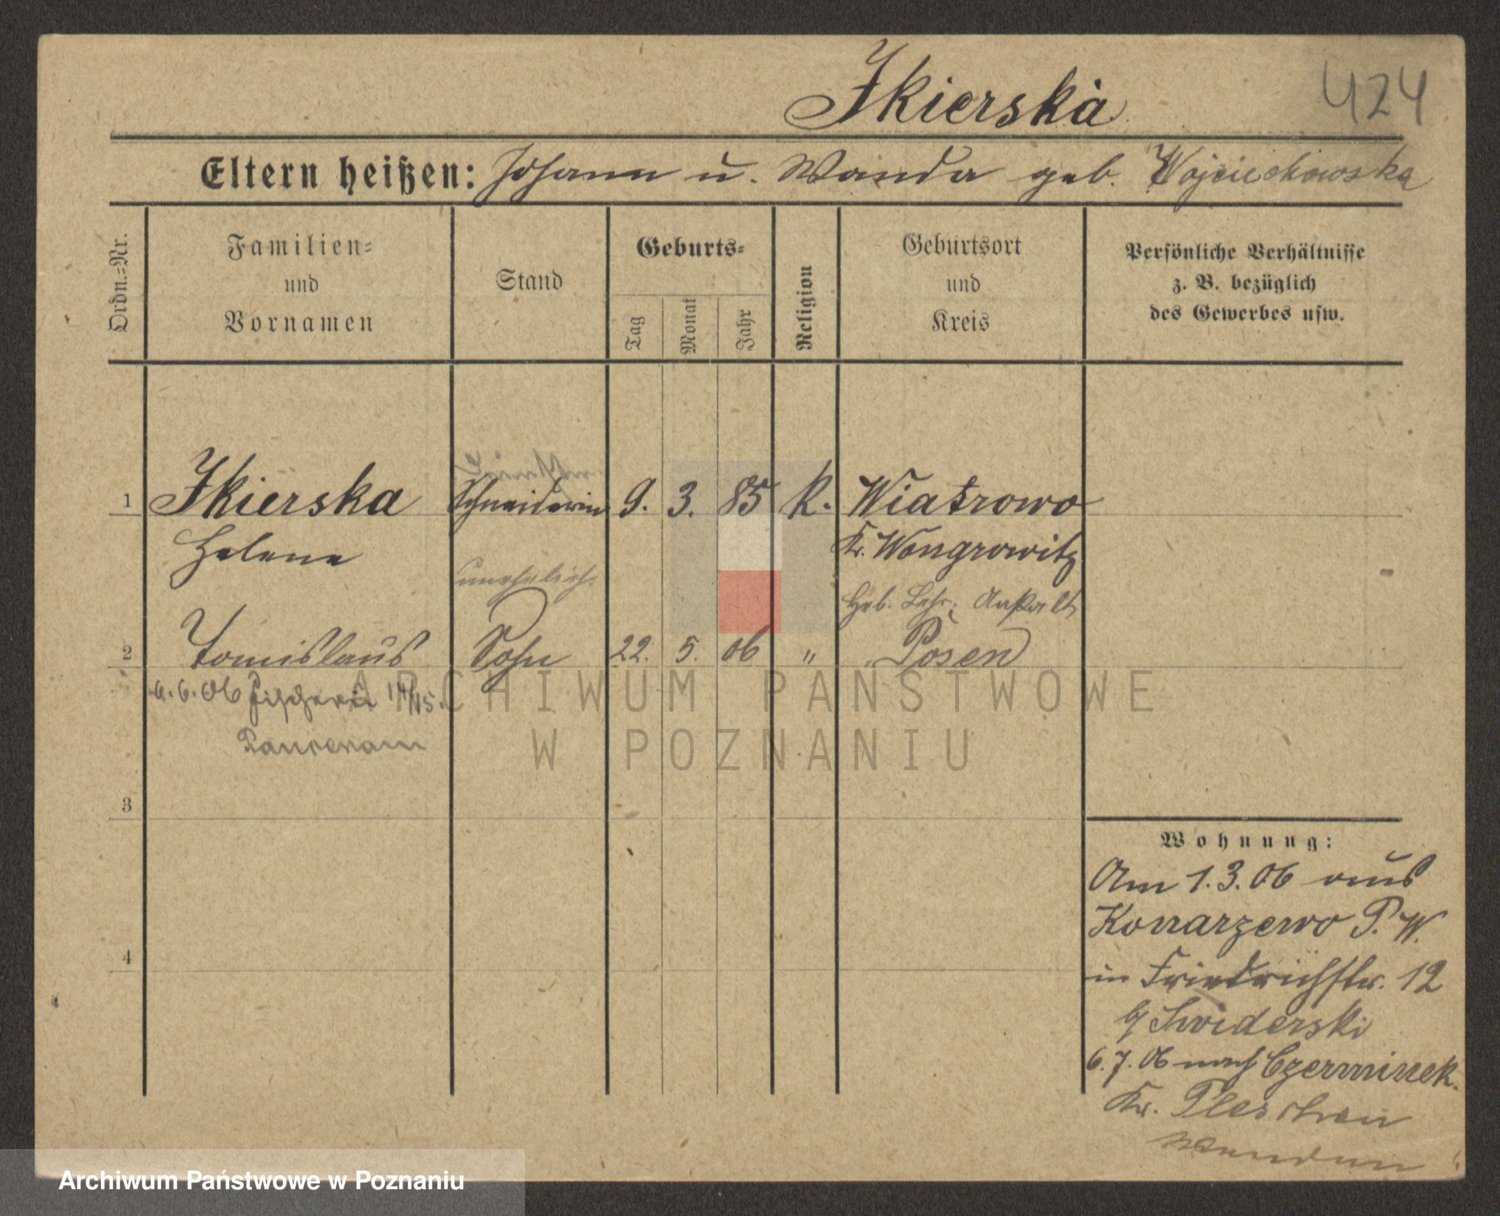 Ikierska
424
Eltern heißen: Johann u. Wanda geb. Wojciechowska
Ordn.=Nr.
Familien=
und
Vornamen
Stand
Geburts=
Tag
Monat
Jahr
Religion
Geburtsort
und
Kreis
Persönliche Verhältnisse
z. B. bezüglich
des Gewerbes usw.
1 Ikierska Schneiderin 9. 3. 85 k. Wiatrowo
Helene Kr. Wongrowitz
unehelich.
Geb. Lehr. Anstalt
2 Tomislaus Sohn 22. 5. 06 " Posen
6. 6. 06
3
4
Wohnung:
Am 1.3.06 aus
Konarzewo P. W.
in Friedrichstr. 12
b/ Swiderski
6.7.06 nach Czerminek.
Kr. Pleschen
wenden
ARCHIWUM PAŃSTWOWE
W POZNANIU
Archiwum Państwowe w Poznaniu